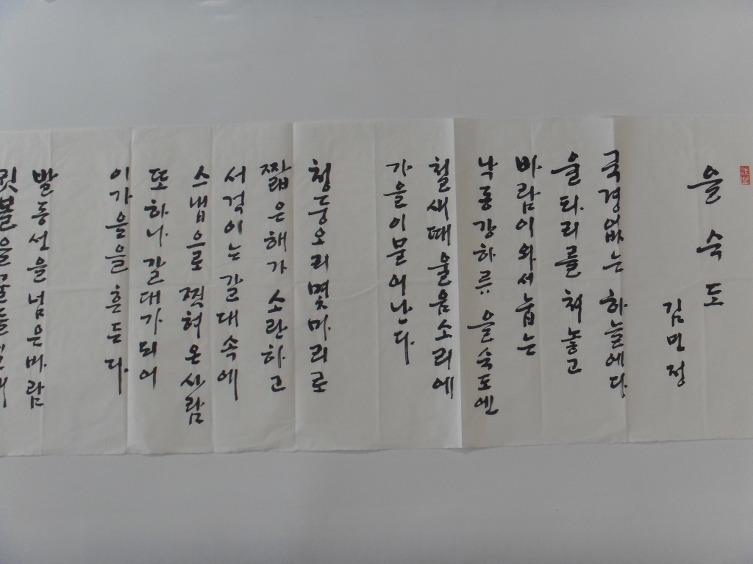 을숙도
김민정
국경없는 하늘에다
울타리를 쳐놓고
바람이 와서 눕는
낙동강 하류 을숙도엔
철새떼 울음소리에
가을이 묻어난다.
청둥오리 몇마리로
짧은 해가 소란하고
서걱이는 갈대속에
스냅으로 찍혀온 사람
또 하나 갈대가 되어
이 가을을 흔든다.
발동선을 넘은 바람